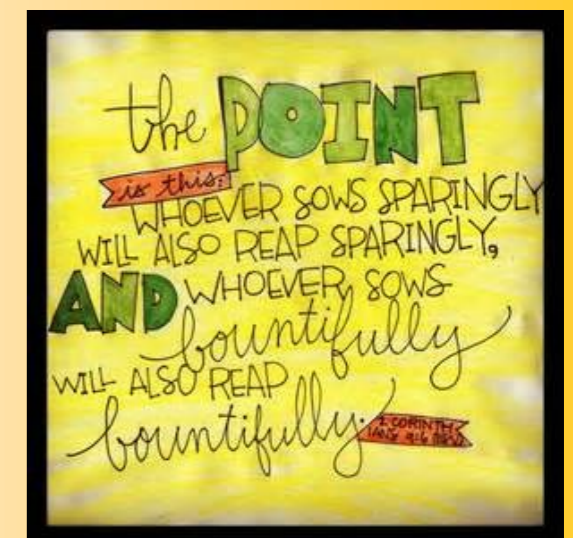 the POINT
is this:
WHOEVER SOWS SPARINGLY
WILL ALSO REAP SPARINGLY,
AND WHOEVER SOWS
bountifully
WILL ALSO REAP
bountifully.
2 CORINTH
IANS 9:6